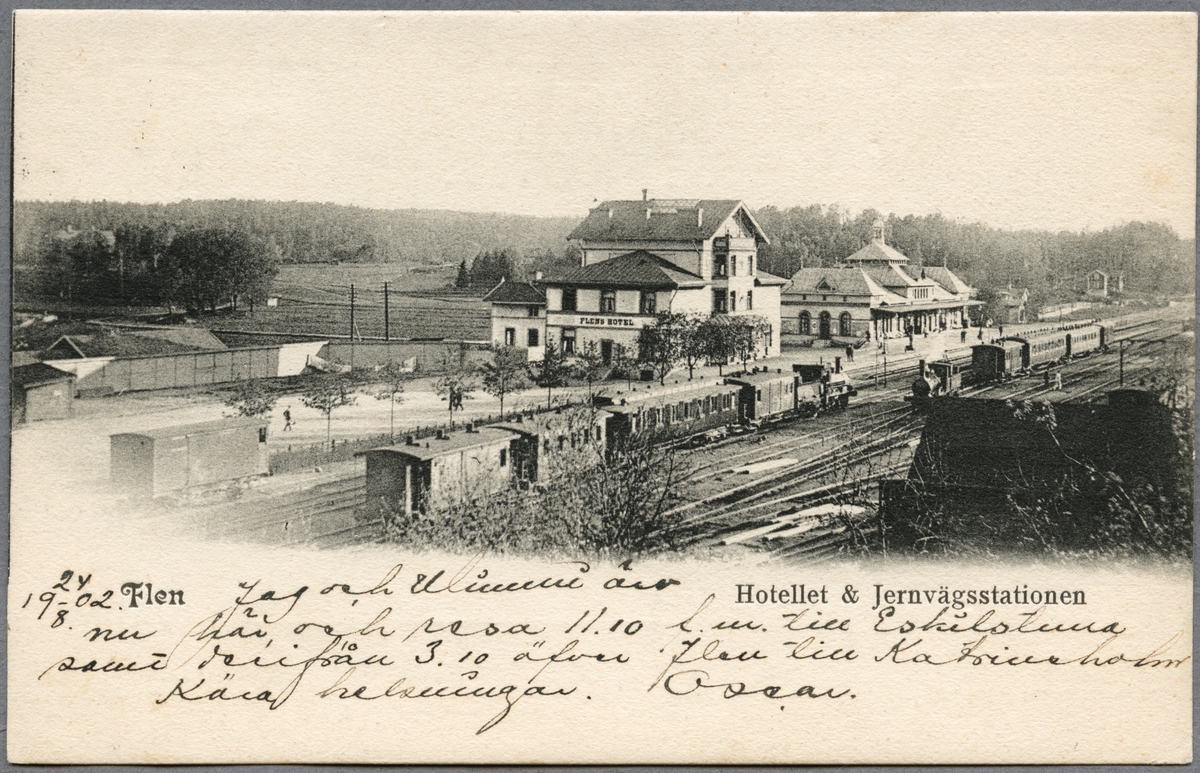 FLENS HOTEL
Flen Hotellet & Jernvägsstationen
19 24/8 02. Jag och Mimmi äro
nu här, och resa 11.10 f.m. till Eskilstuna
samt derifrån 3.10 öfver Flen till Katrineholm
Kära helsningar. Oscar.